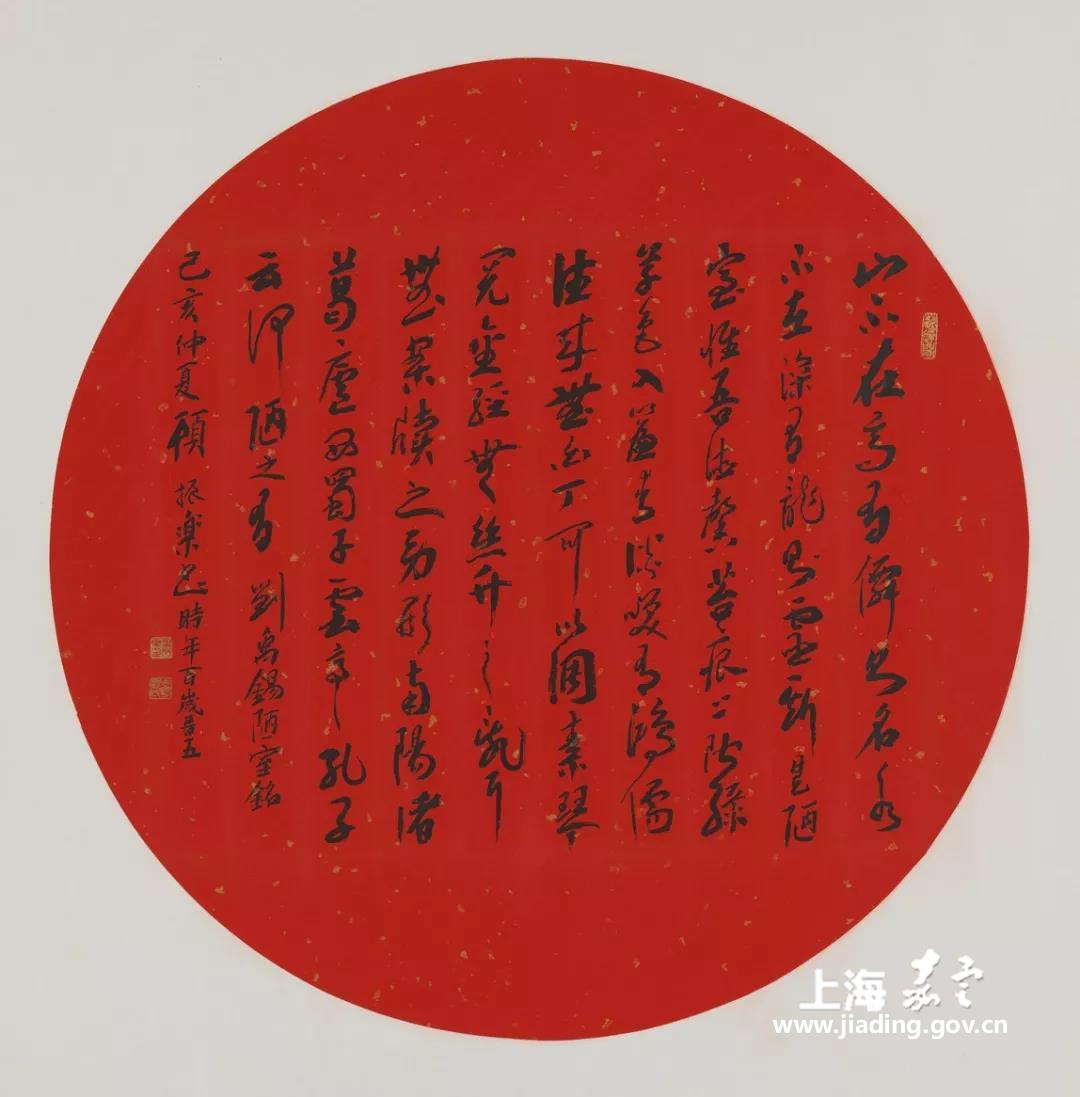 山不在高有僊則名水
不在深有龍則靈斯是陋
室惟吾德馨苔痕上階綠
草色入簾青談笑有鴻儒
往來無白丁可以調素琴
閱金經無絲竹之亂耳
無案牘之勞形南陽諸
葛廬西蜀子雲亭孔子
云何陋之有 劉禹錫陋室銘
己亥仲夏顧振樂書時年百歲晉五
上海嘉定
www.jiading.gov.cn